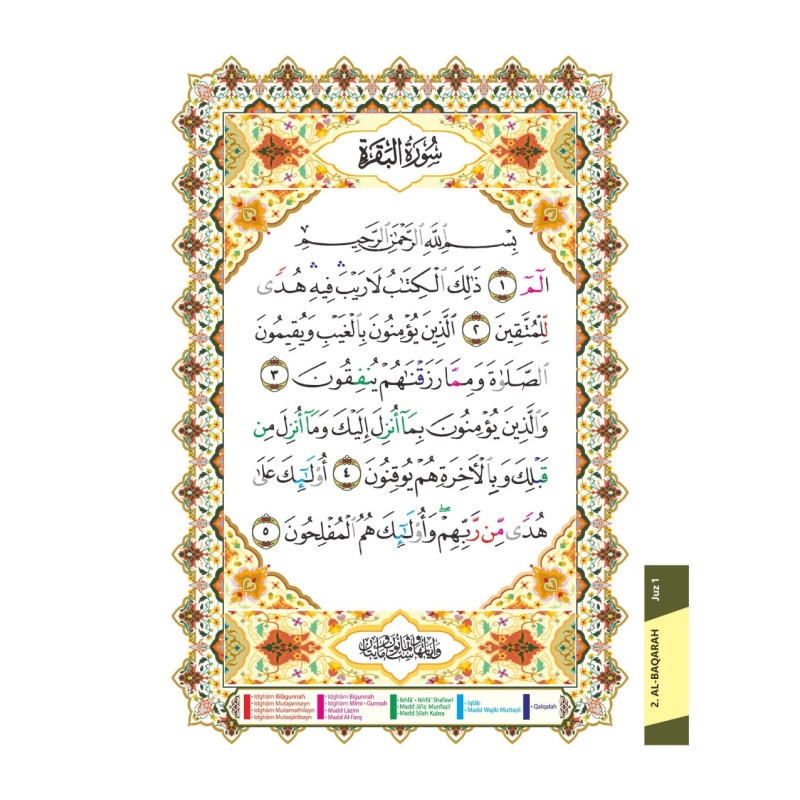 سُورَةُ الْبَقَرَةِ
بِسْمِ اللَّهِ الرَّحْمَٰنِ الرَّحِيمِ
الٓمٓ ١ ذَٰلِكَ الْكِتَابُ لَا رَيْبَ ۛ فِيهِ ۛ هُدًى
لِّلْمُتَّقِينَ ٢ الَّذِينَ يُؤْمِنُونَ بِالْغَيْبِ وَيُقِيمُونَ
الصَّلَوٰةَ وَمِمَّا رَزَقْنَاهُمْ يُنفِقُونَ ٣
وَالَّذِينَ يُؤْمِنُونَ بِمَآ أُنزِلَ إِلَيْكَ وَمَآ أُنزِلَ مِن
قَبْلِكَ وَبِالْآخِرَةِ هُمْ يُوقِنُونَ ٤ أُولَٰٓئِكَ عَلَىٰ
هُدًى مِّن رَّبِّهِمْ ۖ وَأُولَٰٓئِكَ هُمُ الْمُفْلِحُونَ ٥
• Idghām Bilāgunnah
• Idghām Mutajānisayn
• Idghām Mutamāthilayn
• Idghām Mutaqāribayn
• Idghām Bigunnah
• Idghām Mīmī - Gunnah
• Madd Lāzim
• Madd Al-Farq
• Ikhfā' • Ikhfā' Shafawī
• Madd Jā'iz Munfaṣil
• Madd Ṣilah Kubra
• Iqlāb
• Madd Wajib Muttaṣil
• Qalqalah
Juz 1
2. AL-BAQARAH